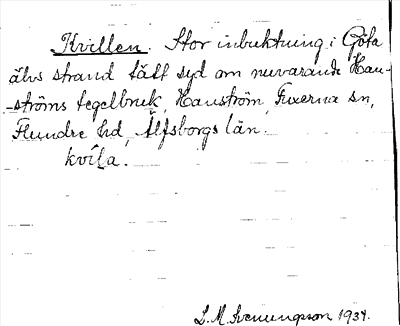 Kvillen. Stor inbuktning i Göta
älvs strand tätt syd om nuvarande Hau-
-ströms tegelbruk, Hauström, Fuxerna sn,
Flundre hd, Älfsborgs län.
kvila.
L. M. Svenungsson 1934.